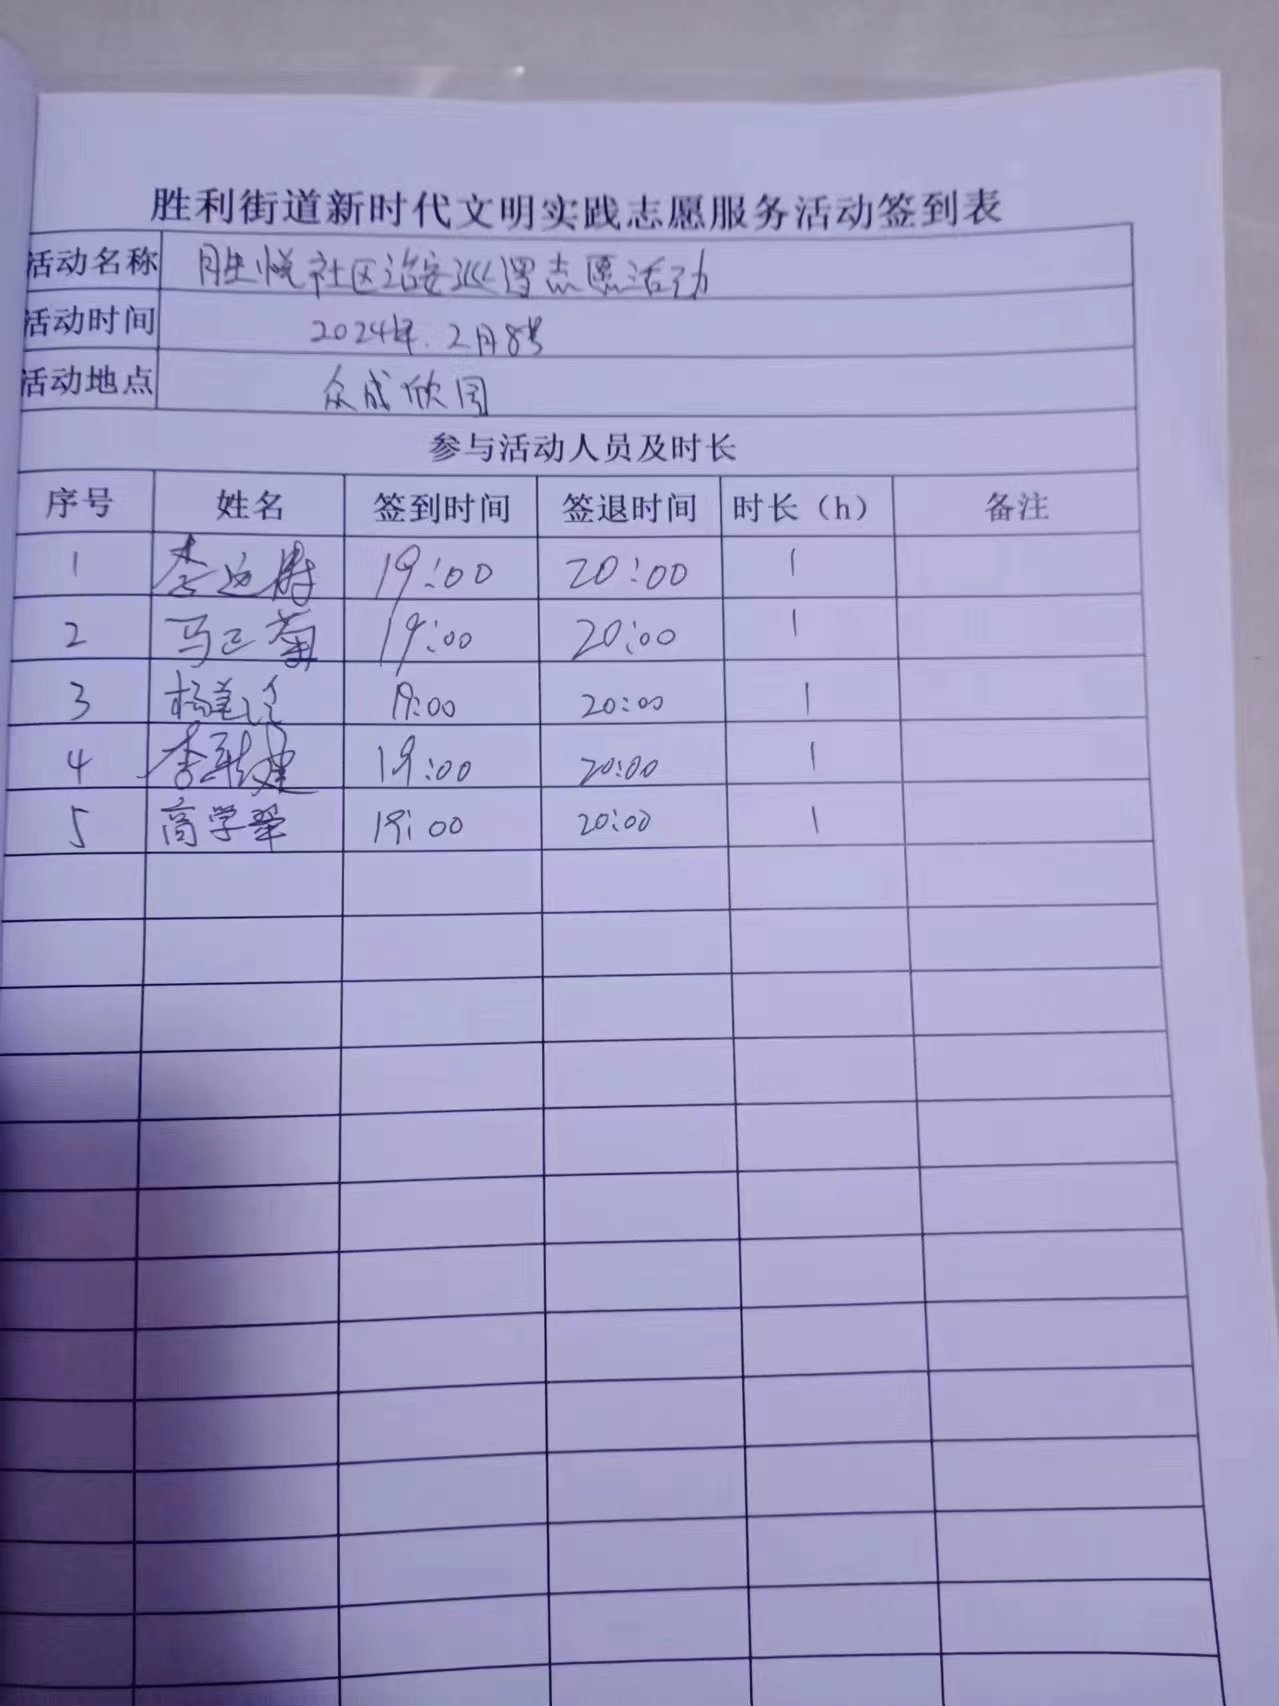 胜利街道新时代文明实践志愿服务活动签到表
活动名称 胜悦社区治安巡逻志愿活动
活动时间 2024年.2月8号
活动地点 众成欣园
参与活动人员及时长
序号 姓名 签到时间 签退时间 时长（h） 备注
1 李 19:00 20:00 1
2 马 菊 19:00 20:00 1
3 杨 19:00 20:00 1
4 李 建 19:00 20:00 1
5 高学翠 19:00 20:00 1